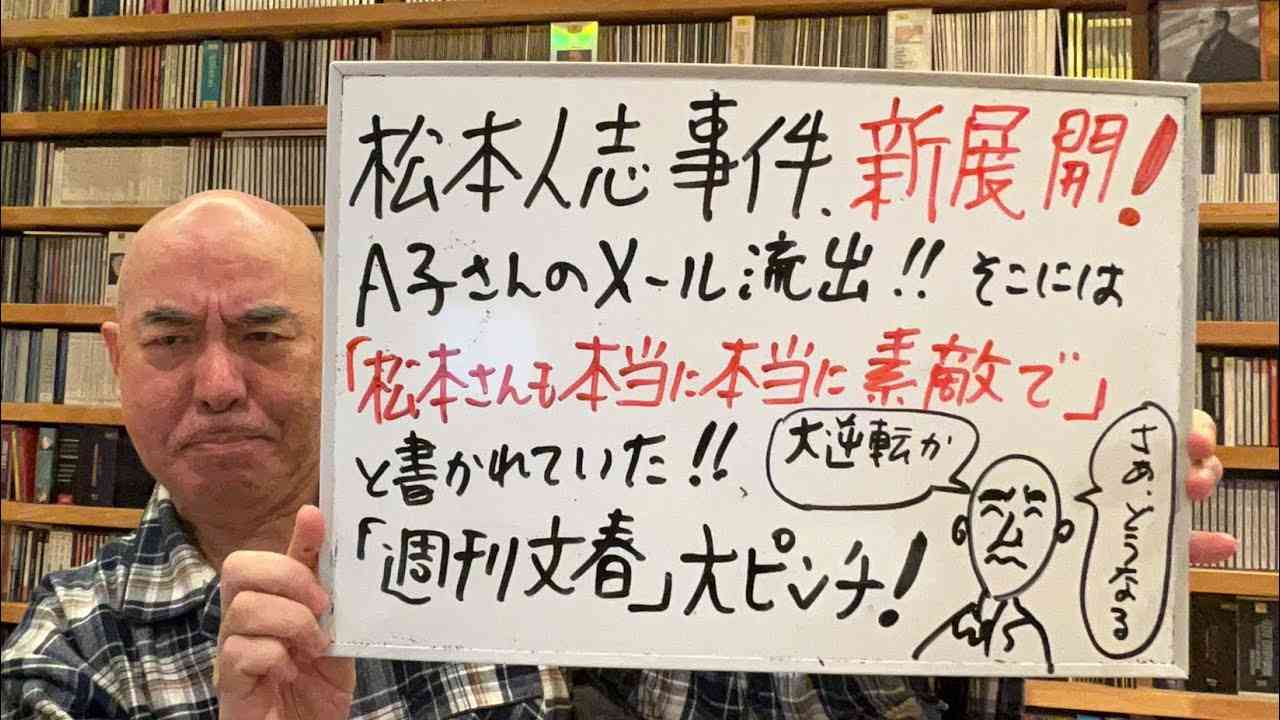 松本人志事件、新展開!
A子さんのメール流出!! そこには
「松本さんも本当に本当に素敵で」
と書かれていた!!
「週刊文春」大ピンチ!
大逆転か
さあ、どうなる